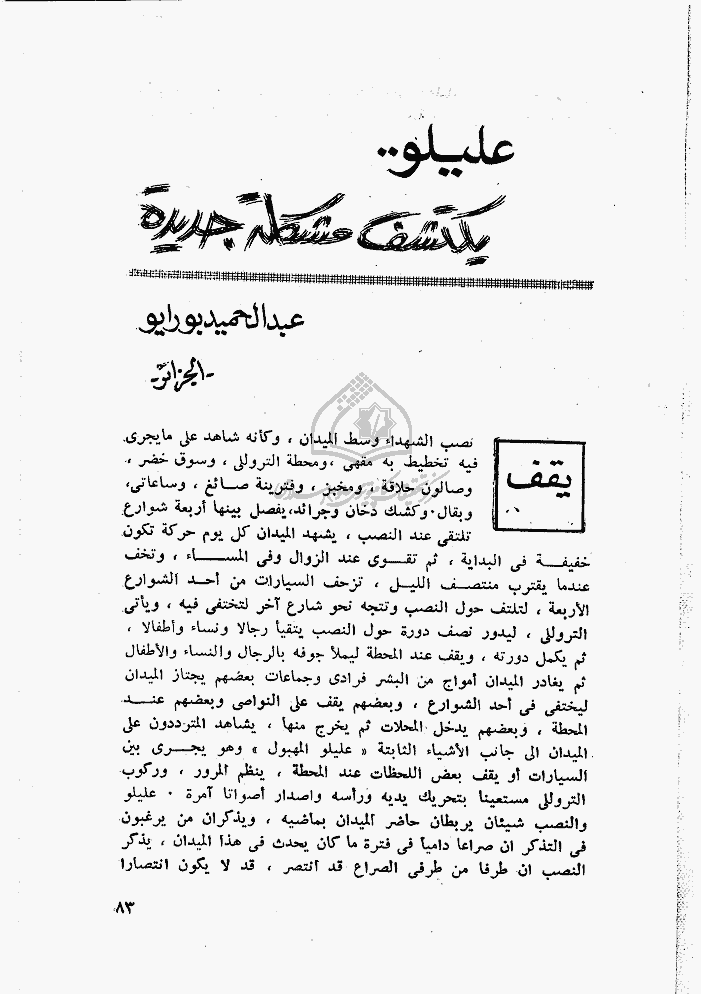 عليلو..
يكتشف مشكلة جديدة
عبدالحميد بورايو
-الجزائر-
يقف
نصب الشهداء وسط الميدان ، وكأنه شاهد على مايجرى
فيه تخطيط به مقهى ،ومحطة الترولى ، وسوق خضر ،
وصالون حلاقة ، ومخبز ، وفترينة صائغ ، وساعاتى،
وبقال، وكشك دخان وجرائد،يفصل بينها أربعة شوارع
تلتقى عند النصب ، يشهد الميدان كل يوم حركة تكون
خفيفة فى البداية ، ثم تقوى عند الزوال وفى المساء ، وتخف
عندما يقترب منتصف الليل ، تزحف السيارات من أحد الشوارع
الأربعة ، لتلتف حول النصب وتتجه نحو شارع آخر لتختفى فيه ، ويأتى
الترولى ، ليدور نصف دورة حول النصب يتقيأ رجالا ونساء وأطفالا ،
ثم يكمل دورته ، ويقف عند المحطة ليملأ جوفه بالرجال والنساء والأطفال
ثم يغادر الميدان أمواج من البشر فرادى وجماعات بعضهم يجتاز الميدان
ليختفى فى أحد الشوارع ، وبعضهم يقف على النواصى وبعضهم عند
المحطة ، وبعضهم يدخل المحلات ثم يخرج منها ، يشاهد المترددون على
الميدان الى جانب الأشياء الثابتة « عليلو المهبول » وهو يجرى بين
السيارات أو يقف بعض اللحظات عند المحطة ، ينظم المرور ، وركوب
الترولى مستعينا بتحريك يديه ورأسه واصدار أصواتا آمرة ٠ عليلو
والنصب شيئان يربطان حاضر الميدان بماضيه ، ويذكران من يرغبون
فى التذكر ان صراعا داميا فى فترة ما كان يحدث فى هذا الميدان ، يذكر
النصب ان طرفا من طرفى الصراع قد انتصر ، قد لا يكون انتصارا
٨٣